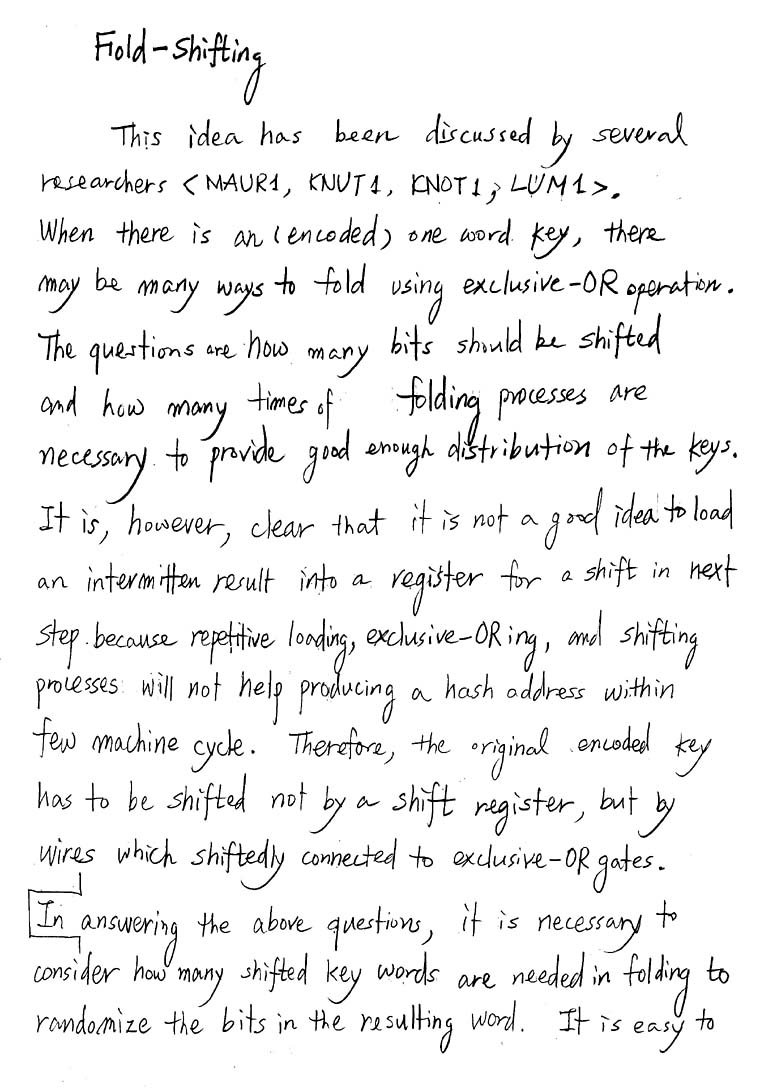 Fold-Shifting
This idea has been discussed by several
researchers <MAUR1, KNUT1, KNOT1, LUM1>.
When there is an (encoded) one word key, there
may be many ways to fold using exclusive-OR operation.
The questions are how many bits should be shifted
and how many times of folding processes are
necessary to provide good enough distribution of the keys.
It is, however, clear that it is not a good idea to load
an intermitten result into a register for a shift in next
step because repetitive loading, exclusive-ORing, and shifting
processes will not help producing a hash address within
few machine cycle. Therefore, the original encoded key
has to be shifted not by a shift register, but by
wires which shiftedly connected to exclusive-OR gates.
In answering the above questions, it is necessary to
consider how many shifted key words are needed in folding to
randomize the bits in the resulting word. It is easy to